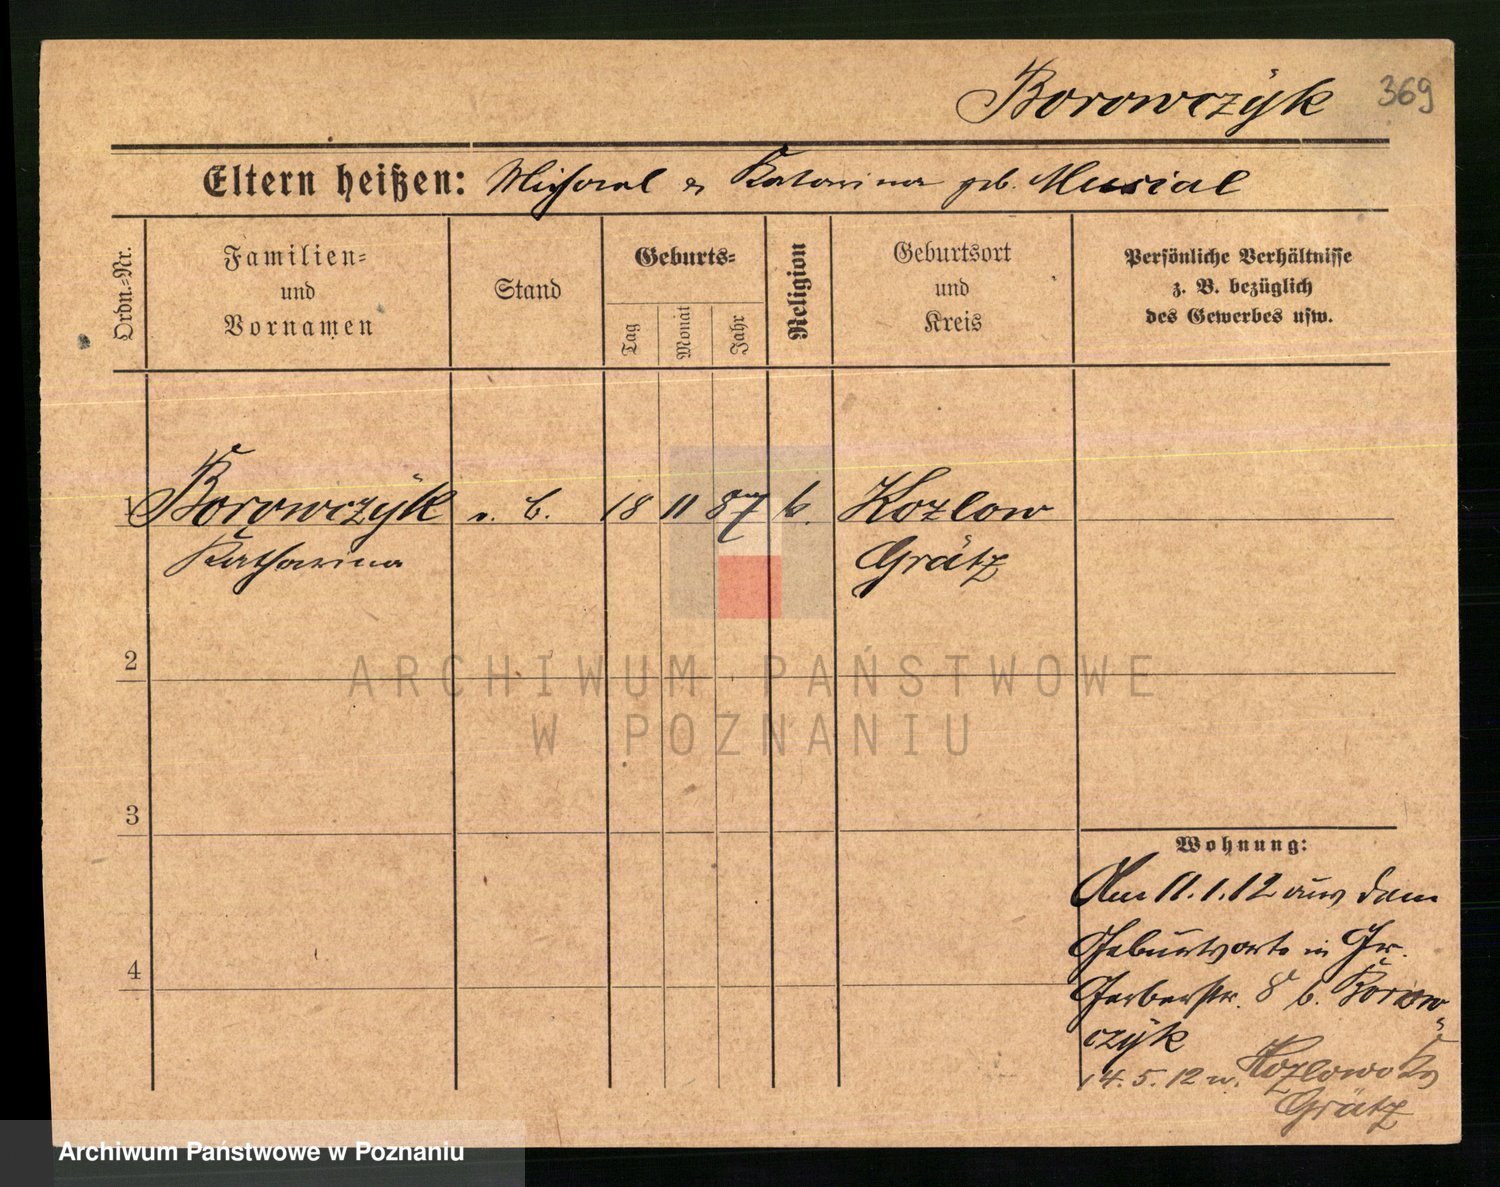 Borowczÿk 369
Eltern heißen: Michael & Katarina geb. Musial
Ordn.-Nr.
Familien-
und
Vornamen
Stand
Geburts-
Tag
Monat
Jahr
Religion
Geburtsort
und
Kreis
Persönliche Verhältnisse
z. B. bezüglich
des Gewerbes usw.
1 Borowczÿk o. B. 18 11 87 k. Kozlow
Katharina Grätz
2
3
4
Wohnung:
Am 11.1.12 aus dem
Geburtsorte in Gr.
Gerberstr. 8 b. Borow-
czÿk
14.5.12 n. Kozlowo Ks
Grätz
ARCHIWUM PAŃSTWOWE
W POZNANIU
Archiwum Państwowe w Poznaniu